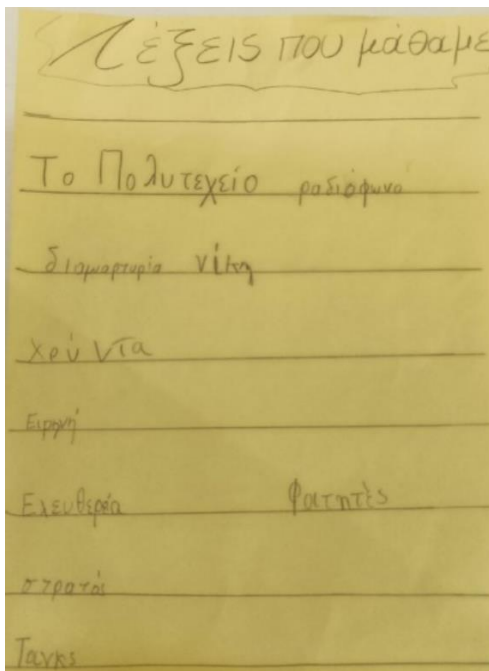 Λέξεις που μάθαμε
Το Πολυτεχείο ραδιόφωνο
διαμαρτυρία νίκη
Χρύντα
Ειρηνή
Ελευθερία Φοιτητές
στρατός
Τανκς